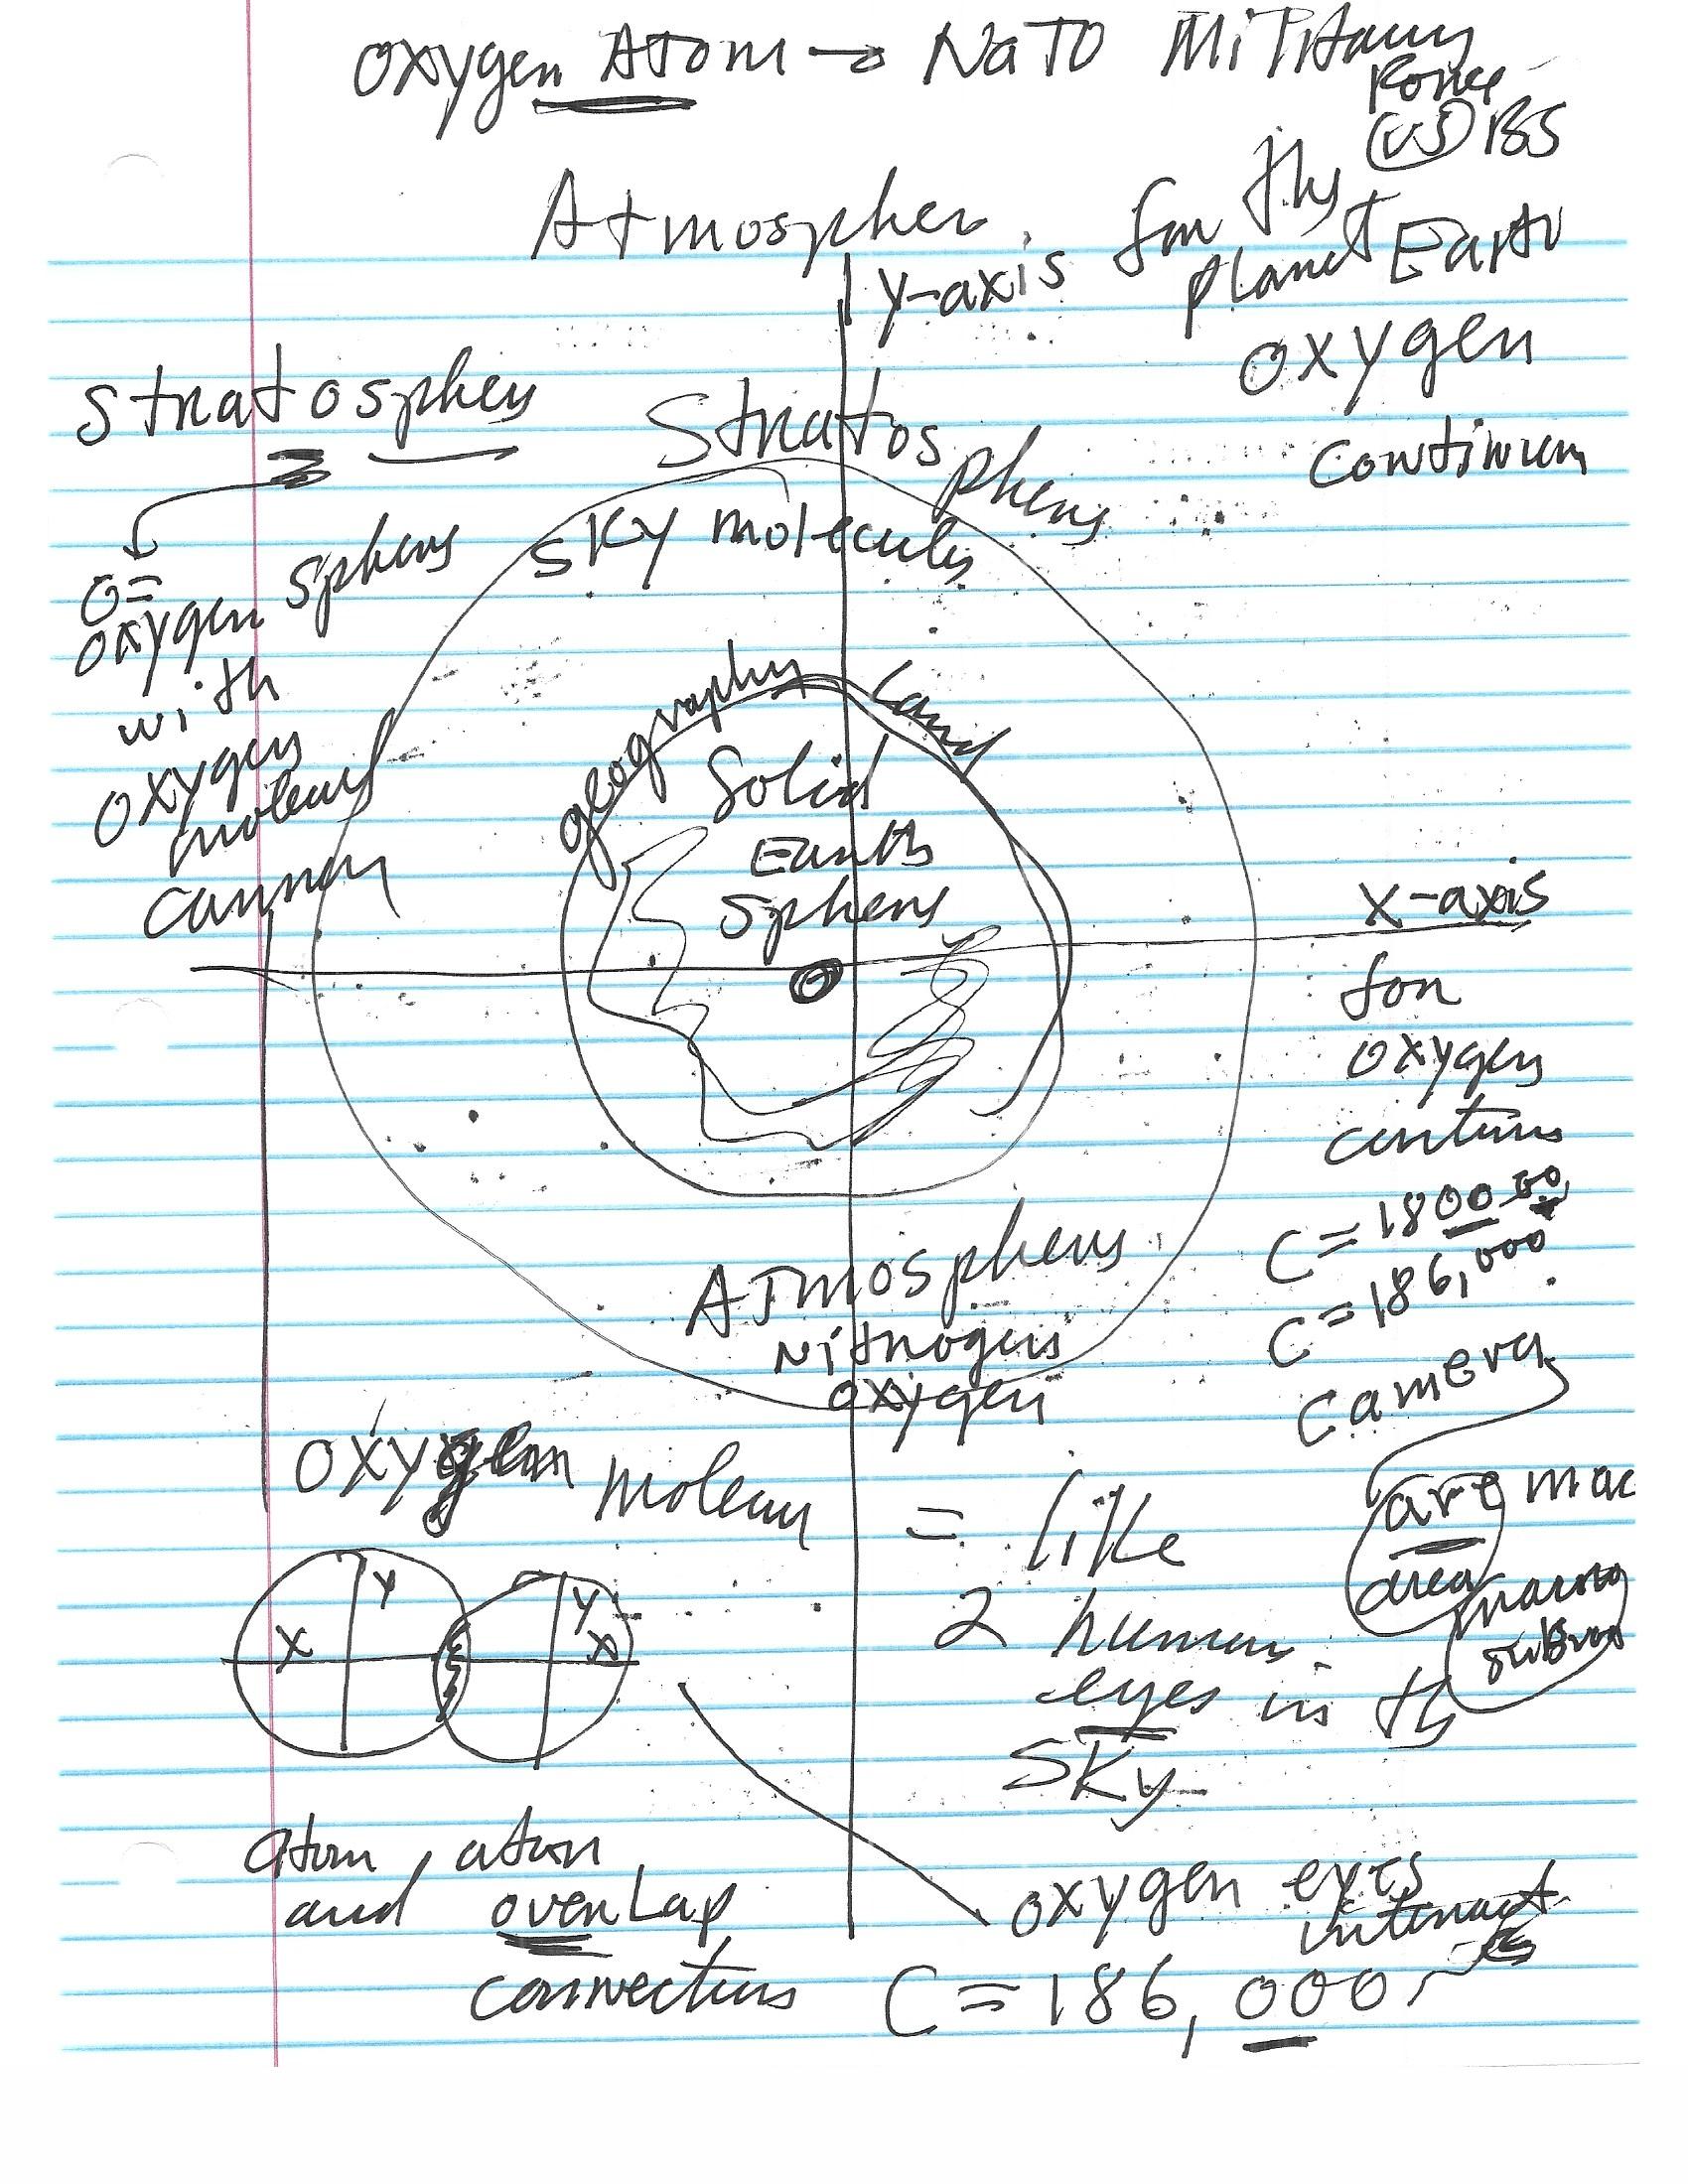 oxygen Atom → NaTO Military
Force
(US) BS
Atmosphere
y-axis for this
planet Earth
oxygen
continuum
Stratosphere
Stratos
phere
SKY molecules
O=
oxygen sphere
with
oxygen
geography Land
Solid
Earth
Sphere
X-axis
for
oxygen
C=1800
C=186,000
camera
Atmosphere
Nitrogen
oxygen
oxygen
= like
2 human
eyes in th
SKy
are mac
area
X Y Y X
atom, atom
and overlap
connections
oxygen eyes
interact
C=186,000